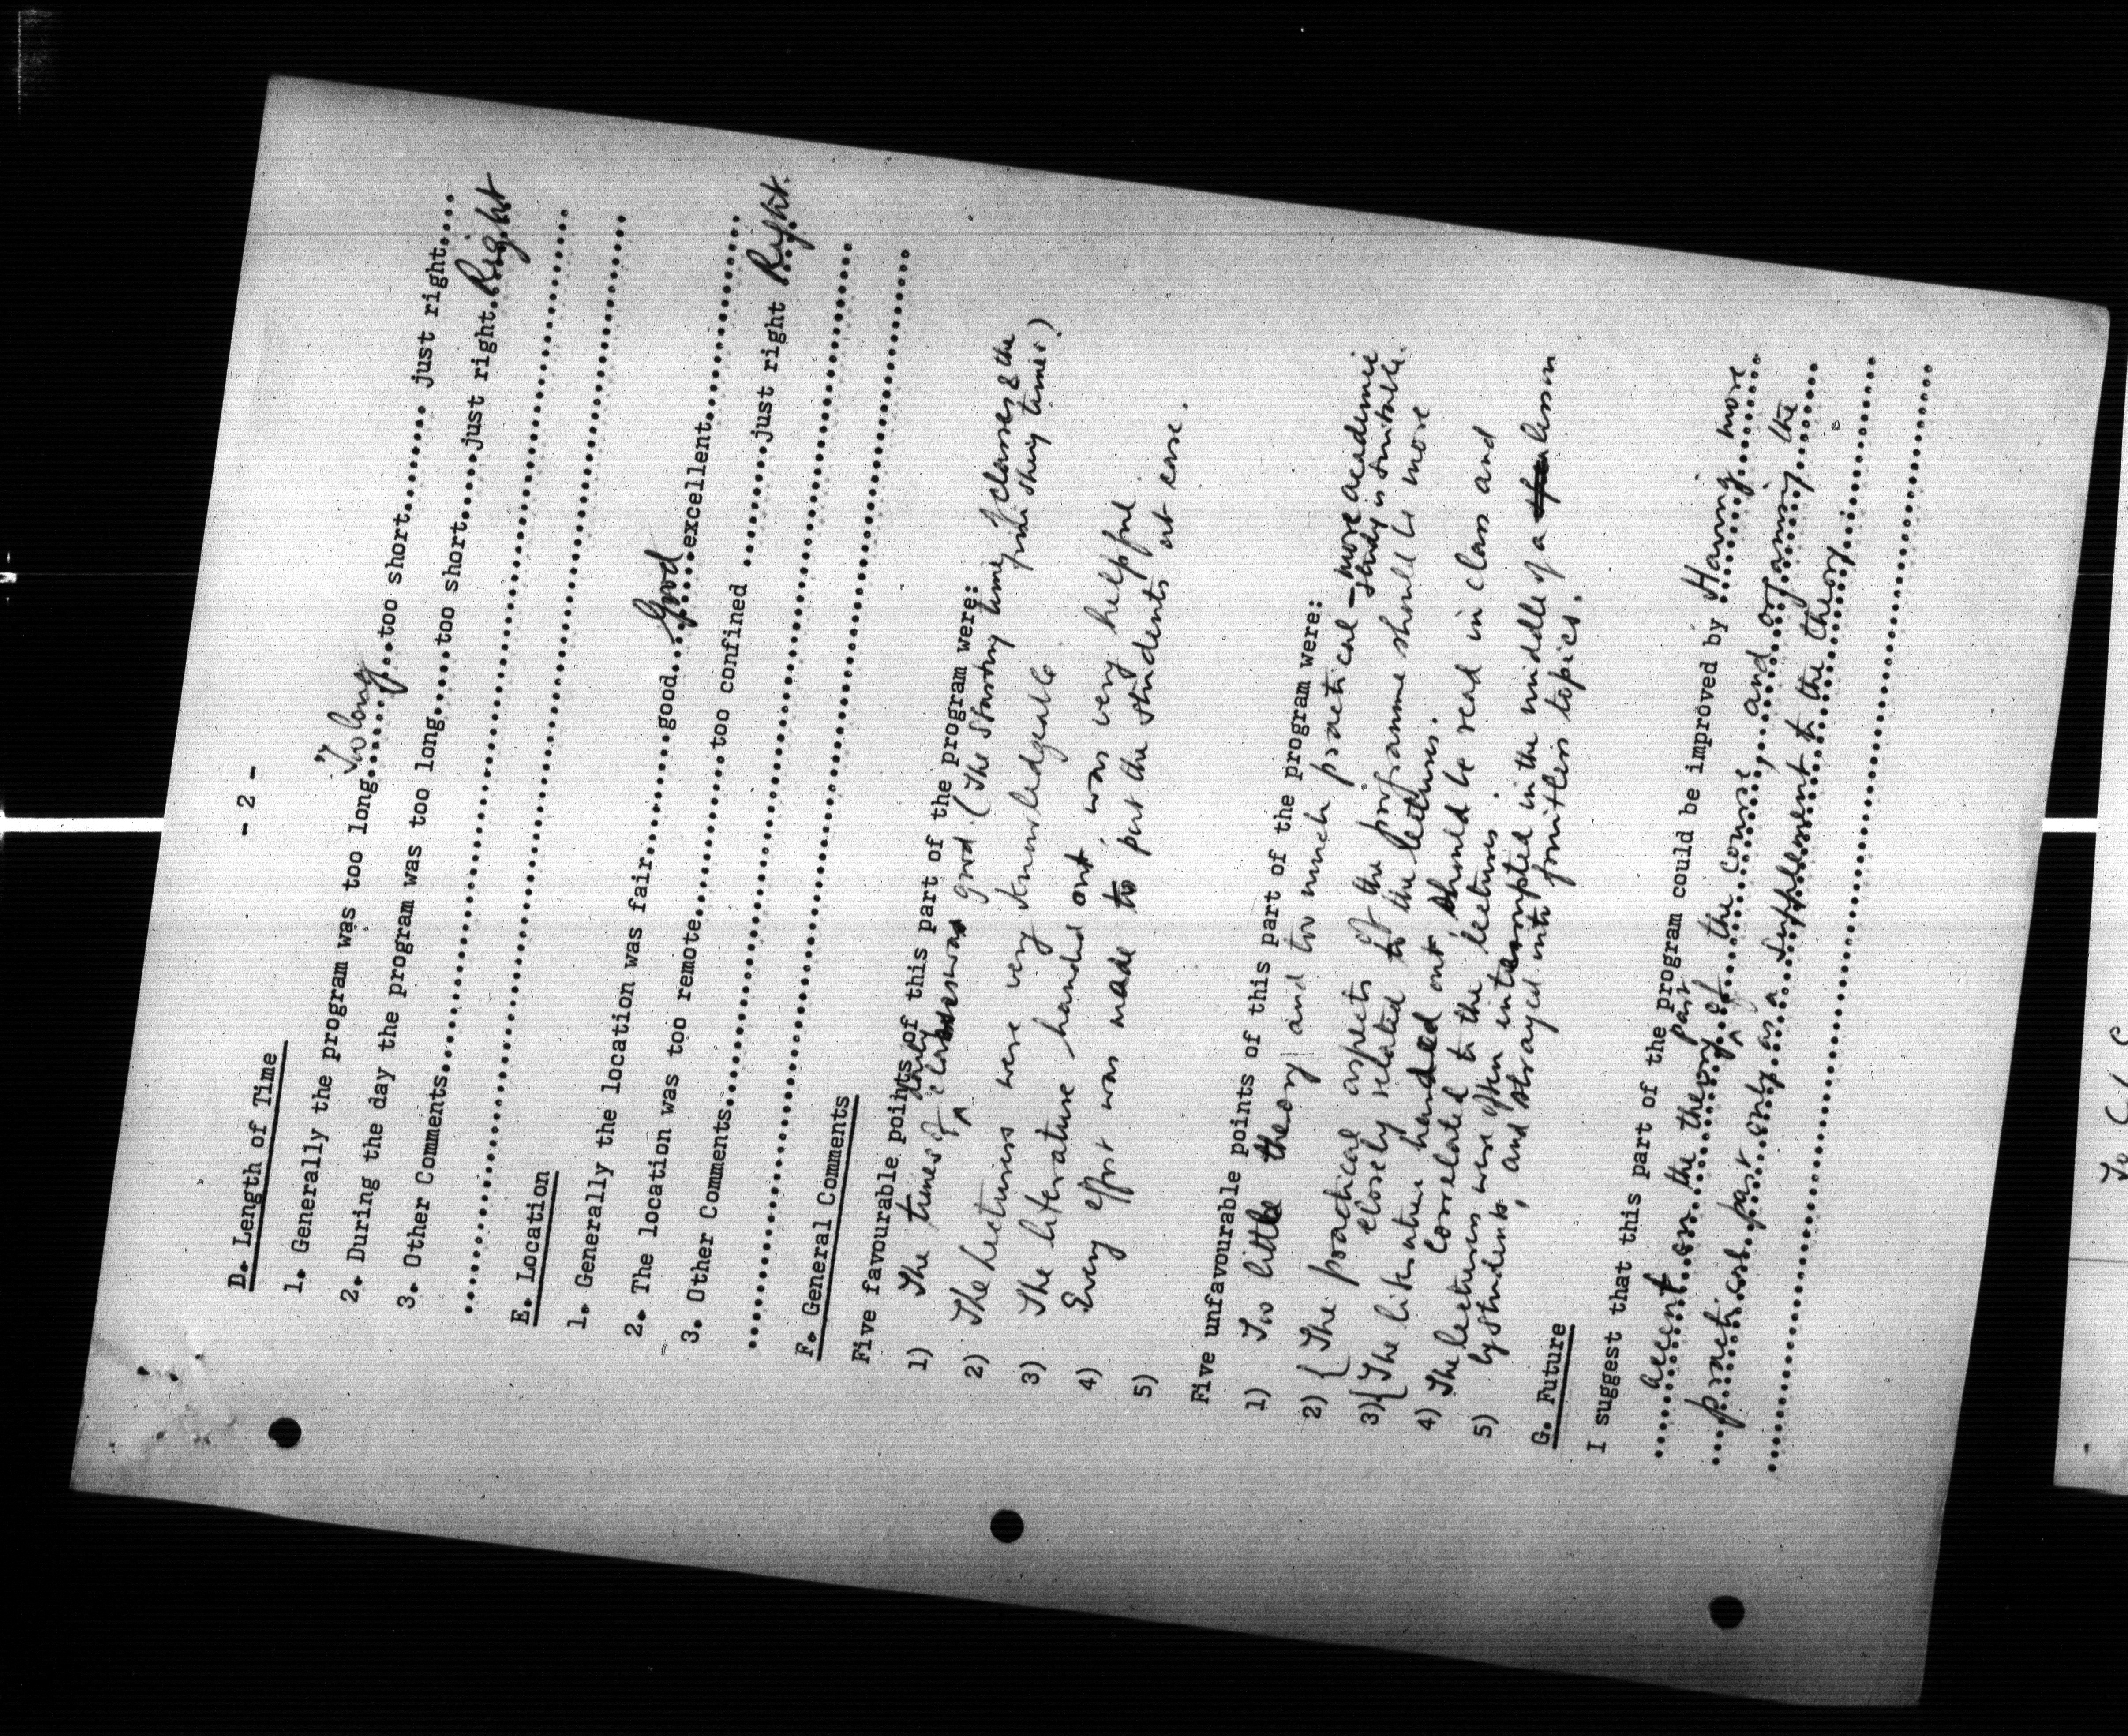 - 2 -
D. Length of Time
1. Generally the program was too long..Too long..too short........ just right....
2. During the day the program was too long.....too short.....just right.Right
3. Other Comments
E. Location
1. Generally the location was fair.......good...Good...excellent
2. The location was too remote.............too confined .......just right Right.
3. Other Comments
F. General Comments
Five favourable points of this part of the program were:
1) The times of daily classes was good. (The starting time of classes & the finishing times)
2) The lectures were very knowledgeable.
3) The literature handed out, was very helpful.
4) Every effort was made to put the students at ease.
5)
Five unfavourable points of this part of the program were:
1) Too little theory and too much practical - more academic study is suitable.
2) { The practical aspects of the programme should be more
closely related to the lectures.
3) { The literature handed out should be read in class and
correlated to the lectures.
4) The lectures were often interrupted in the middle of a lesson
5) by students, and strayed into fruitless topics.
G. Future
I suggest that this part of the program could be improved by Having more
accent on the theory part of the course, and organising the
practical part only as a supplement to the theory
To